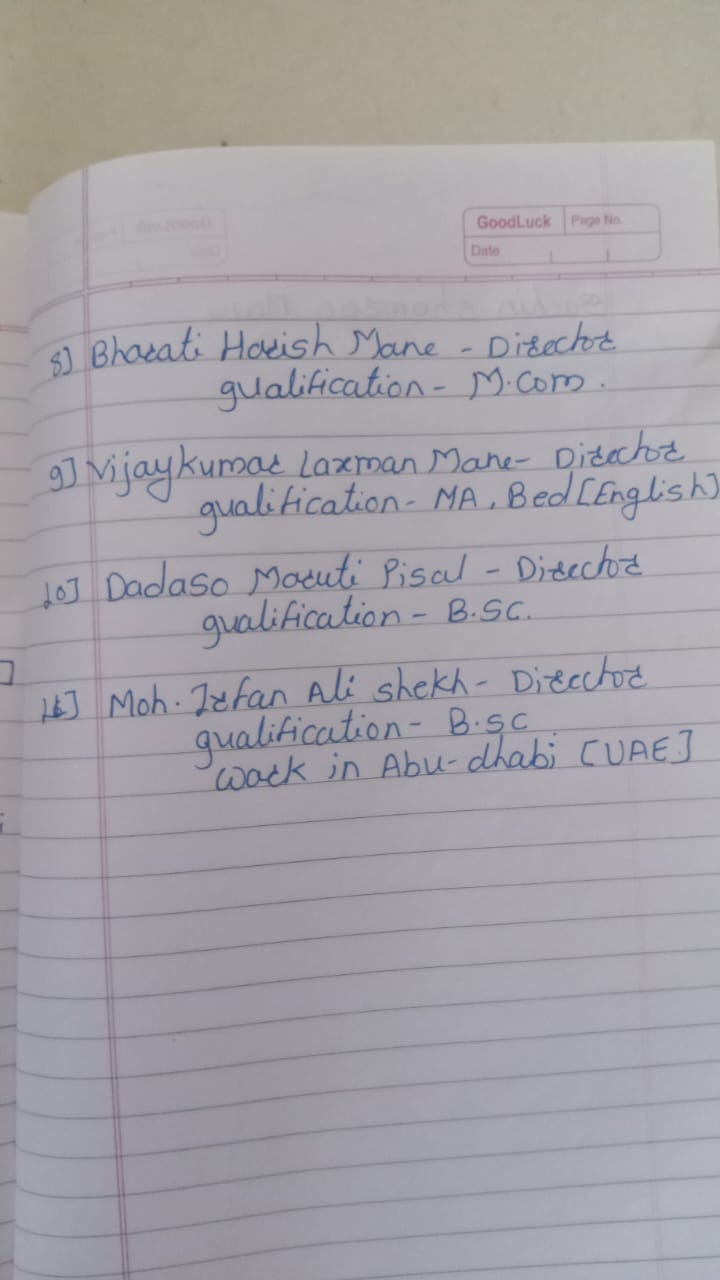 GoodLuck Page No.
Date
8] Bharati Harish Mane - Director
qualification - M.Com.
9] Vijaykumar Laxman Mane - Director
qualification - MA, Bed [English]
10] Dadaso Maruti Pisal - Director
qualification - B.SC.
Moh. Irfan Ali shekh - Director
qualification - B.sc
work in Abu-dhabi [UAE]